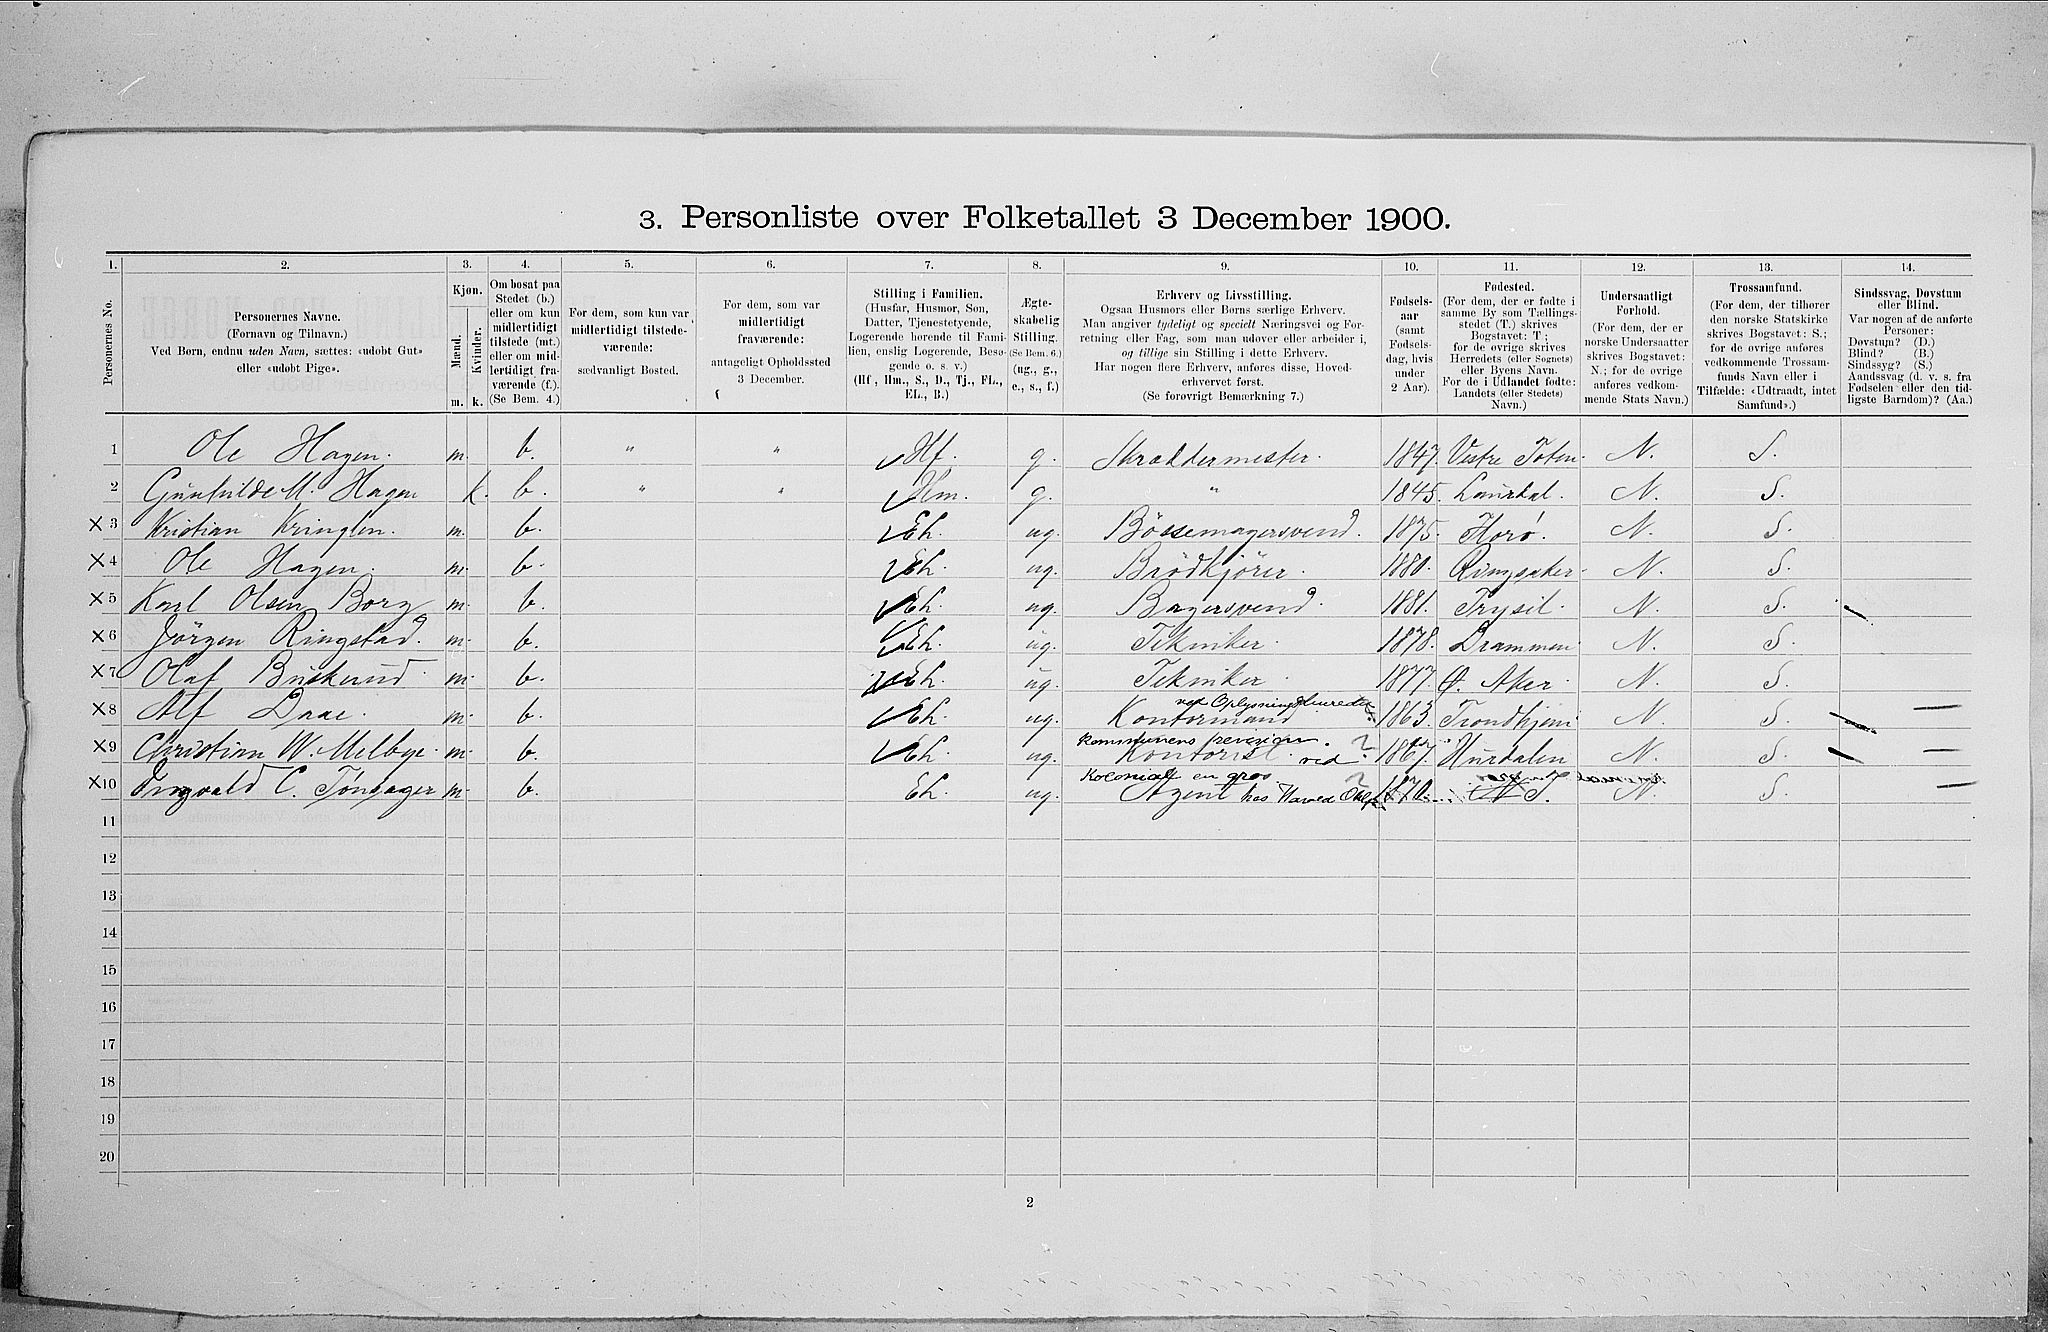 3. Personliste over Folketallet 3 December 1900.
1. 2. 3. 4. 5. 6. 7. 8. 9. 10. 11. 12. 13. 14.
Personernes No.
Personernes Navne.
(Fornavn og Tilnavn.)
Ved Børn, endnu uden Navn, sættes: «udøbt Gut»
eller «udøbt Pige».
Kjøn.
Mænd.
Kvinder.
m. k.
Om bosat paa
Stedet (b.)
eller om kun
midlertidigt
tilstede (mt.)
eller om mid-
lertidigt fra-
værende (f.).
(Se Bem. 4.)
For dem, som kun var
midlertidigt tilstede-
værende:
sædvanligt Bosted.
For dem, som var
midlertidigt
fraværende:
antageligt Opholdssted
3 December.
Stilling i Familien.
(Husfar, Husmor, Søn,
Datter, Tjenestetyende,
Logerende hørende til Fami-
lien, enslig Logerende, Besø-
gende o. s. v.)
(Hf, Hm., S., D., Tj., FL.,
EL., B.)
Ægte-
skabelig
Stilling.
(Se Bem. 6.)
(ug., g.,
e., s., f.)
Erhverv og Livsstilling.
Ogsaa Husmors eller Børns særlige Erhverv.
Man angiver tydeligt og specielt Næringsvei og For-
retning eller Fag, som man udøver eller arbeider i,
og tillige sin Stilling i dette Erhverv.
Har nogen flere Erhverv, anføres disse, Hoved-
erhvervet først.
(Se forøvrigt Bemærkning 7.)
Fødsels-
aar
(samt
Fødsels-
dag, hvis
under
2 Aar).
Fødested.
(For dem, der er fødte i
samme By som Tællings-
stedet (T.) skrives
Bogstavet: T;
for de øvrige skrives
Herredets (eller Sognets)
eller Byens Navn.
For de i Udlandet fødte:
Landets (eller Stedets)
Navn.)
Undersaatligt
Forhold.
(For dem, der er
norske Undersaatter
skrives Bogstavet:
N.; for de øvrige
anføres vedkom-
mende Stats Navn.)
Trossamfund.
(For dem, der tilhører
den norske Statskirke
skrives Bogstavet: S.;
for de øvrige anføres
vedkommende Trossam-
funds Navn eller i
Tilfælde: «Udtraadt, intet
Samfund».)
Sindssvag, Døvstum
eller Blind.
Var nogen af de anførte
Personer:
Døvstum? (D.)
Blind? (B.)
Sindssyg? (S.)
Aandssvag (d. v. s. fra
Fødselen eller den tid-
ligste Barndom)? (Aa.)
1 Ole Hagen. m. b. " " Hf. g. Skræddermester. 1847. Vestre Toten. N. S.
2 Gunhilde M. Hagen k. b. " " Hm. g. " 1845. Laurdal. N. S.
X 3 Kristian Kringlen. m. b. Eh. ug. Bössemagersvend. 1875. Horö. N. S.
X 4 Ole Hagen. m. b. Eh. ug. Brödkjörer. 1880. Ringsaker. N. S.
X 5 Karl Olsen Borg m. b. Eh. ug. Bagersvend. 1881. Trysil. N. S.
X 6 Jörgen Ringstad. m. b. Eh. ug. Tekniker. 1878. Drammen N. S.
X 7 Olaf Buskerud m. b. Eh. ug. Tekniker. 1877. Ö. Aker N. S.
ved Oplysningsbureauet
X 8 Alf Daae. m. b. Eh. ug. Kontormand 1863. Trondhjem N. S.
kommunens revision.
X 9 Christian W. Melbye. m. b. Eh. ug. Kontorist ved ? 1867. Hurdalen N. S.
Kolonial en gros.
X 10 Ingvald C. Tönsager m. b. Eh. ug. Agent hos 1870. T. N. S.
11
12
13
14
15
16
17
18
19
20
2